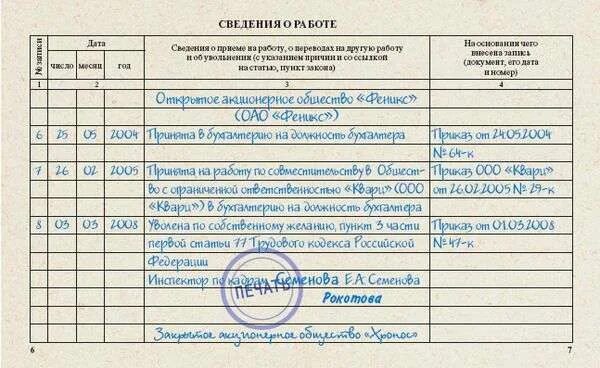 СВЕДЕНИЯ О РАБОТЕ
№ записи
Дата
число месяц год
Сведения о приеме на работу, о переводах на другую работу
и об увольнении (с указанием причин и со ссылкой
на статью, пункт закона)
На основании чего
внесена запись
(документ, его дата
и номер)
1 2 3 4
Открытое акционерное общество «Феникс»
(ОАО «Феникс»)
6 25 05 2004 Принята в бухгалтерию на должность бухгалтера Приказ от 24.05.2004
№ 64-к
7 26 02 2005 Принята на работу по совместительству в Общест- Приказ ООО «Кварц»
во с ограниченной ответственностью «Кварц» (ООО от 26.02.2005 № 29-к
«Кварц») в бухгалтерию на должность бухгалтера
8 03 03 2008 Уволена по собственному желанию, пункт 3 части Приказ от 01.03.2008
первой статьи 77 Трудового кодекса Российской № 47-к
Федерации
Инспектор по кадрам Семенова Е.А. Семенова
ПЕЧАТЬ
Рокотова
Закрытое акционерное общество «Хронос»
6 7